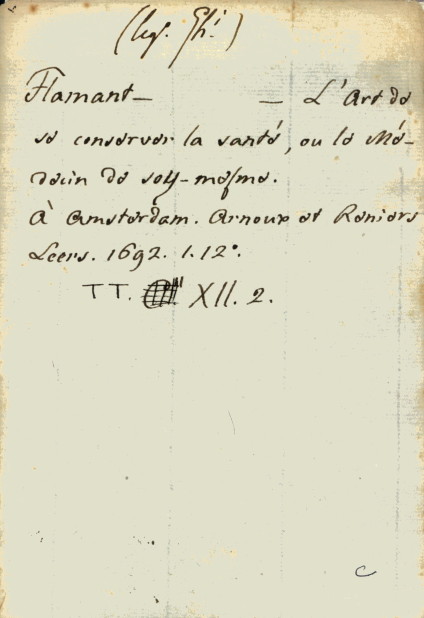 (leg. Ghi.)
Flamant — — L'Art de
se conserver la santé, ou le Mé-
decin de soy-mesme.
À Amsterdam. Arnoux et Reniers
Leers. 1692. 1. 12°.
TT. XII. 2.
C